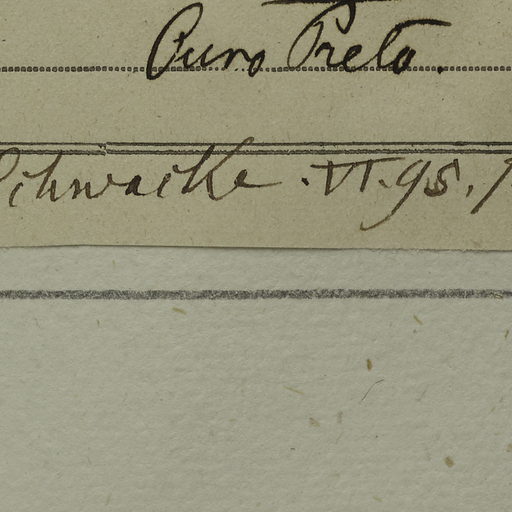 Ouro Preto.
Schwacke. VI. 95.